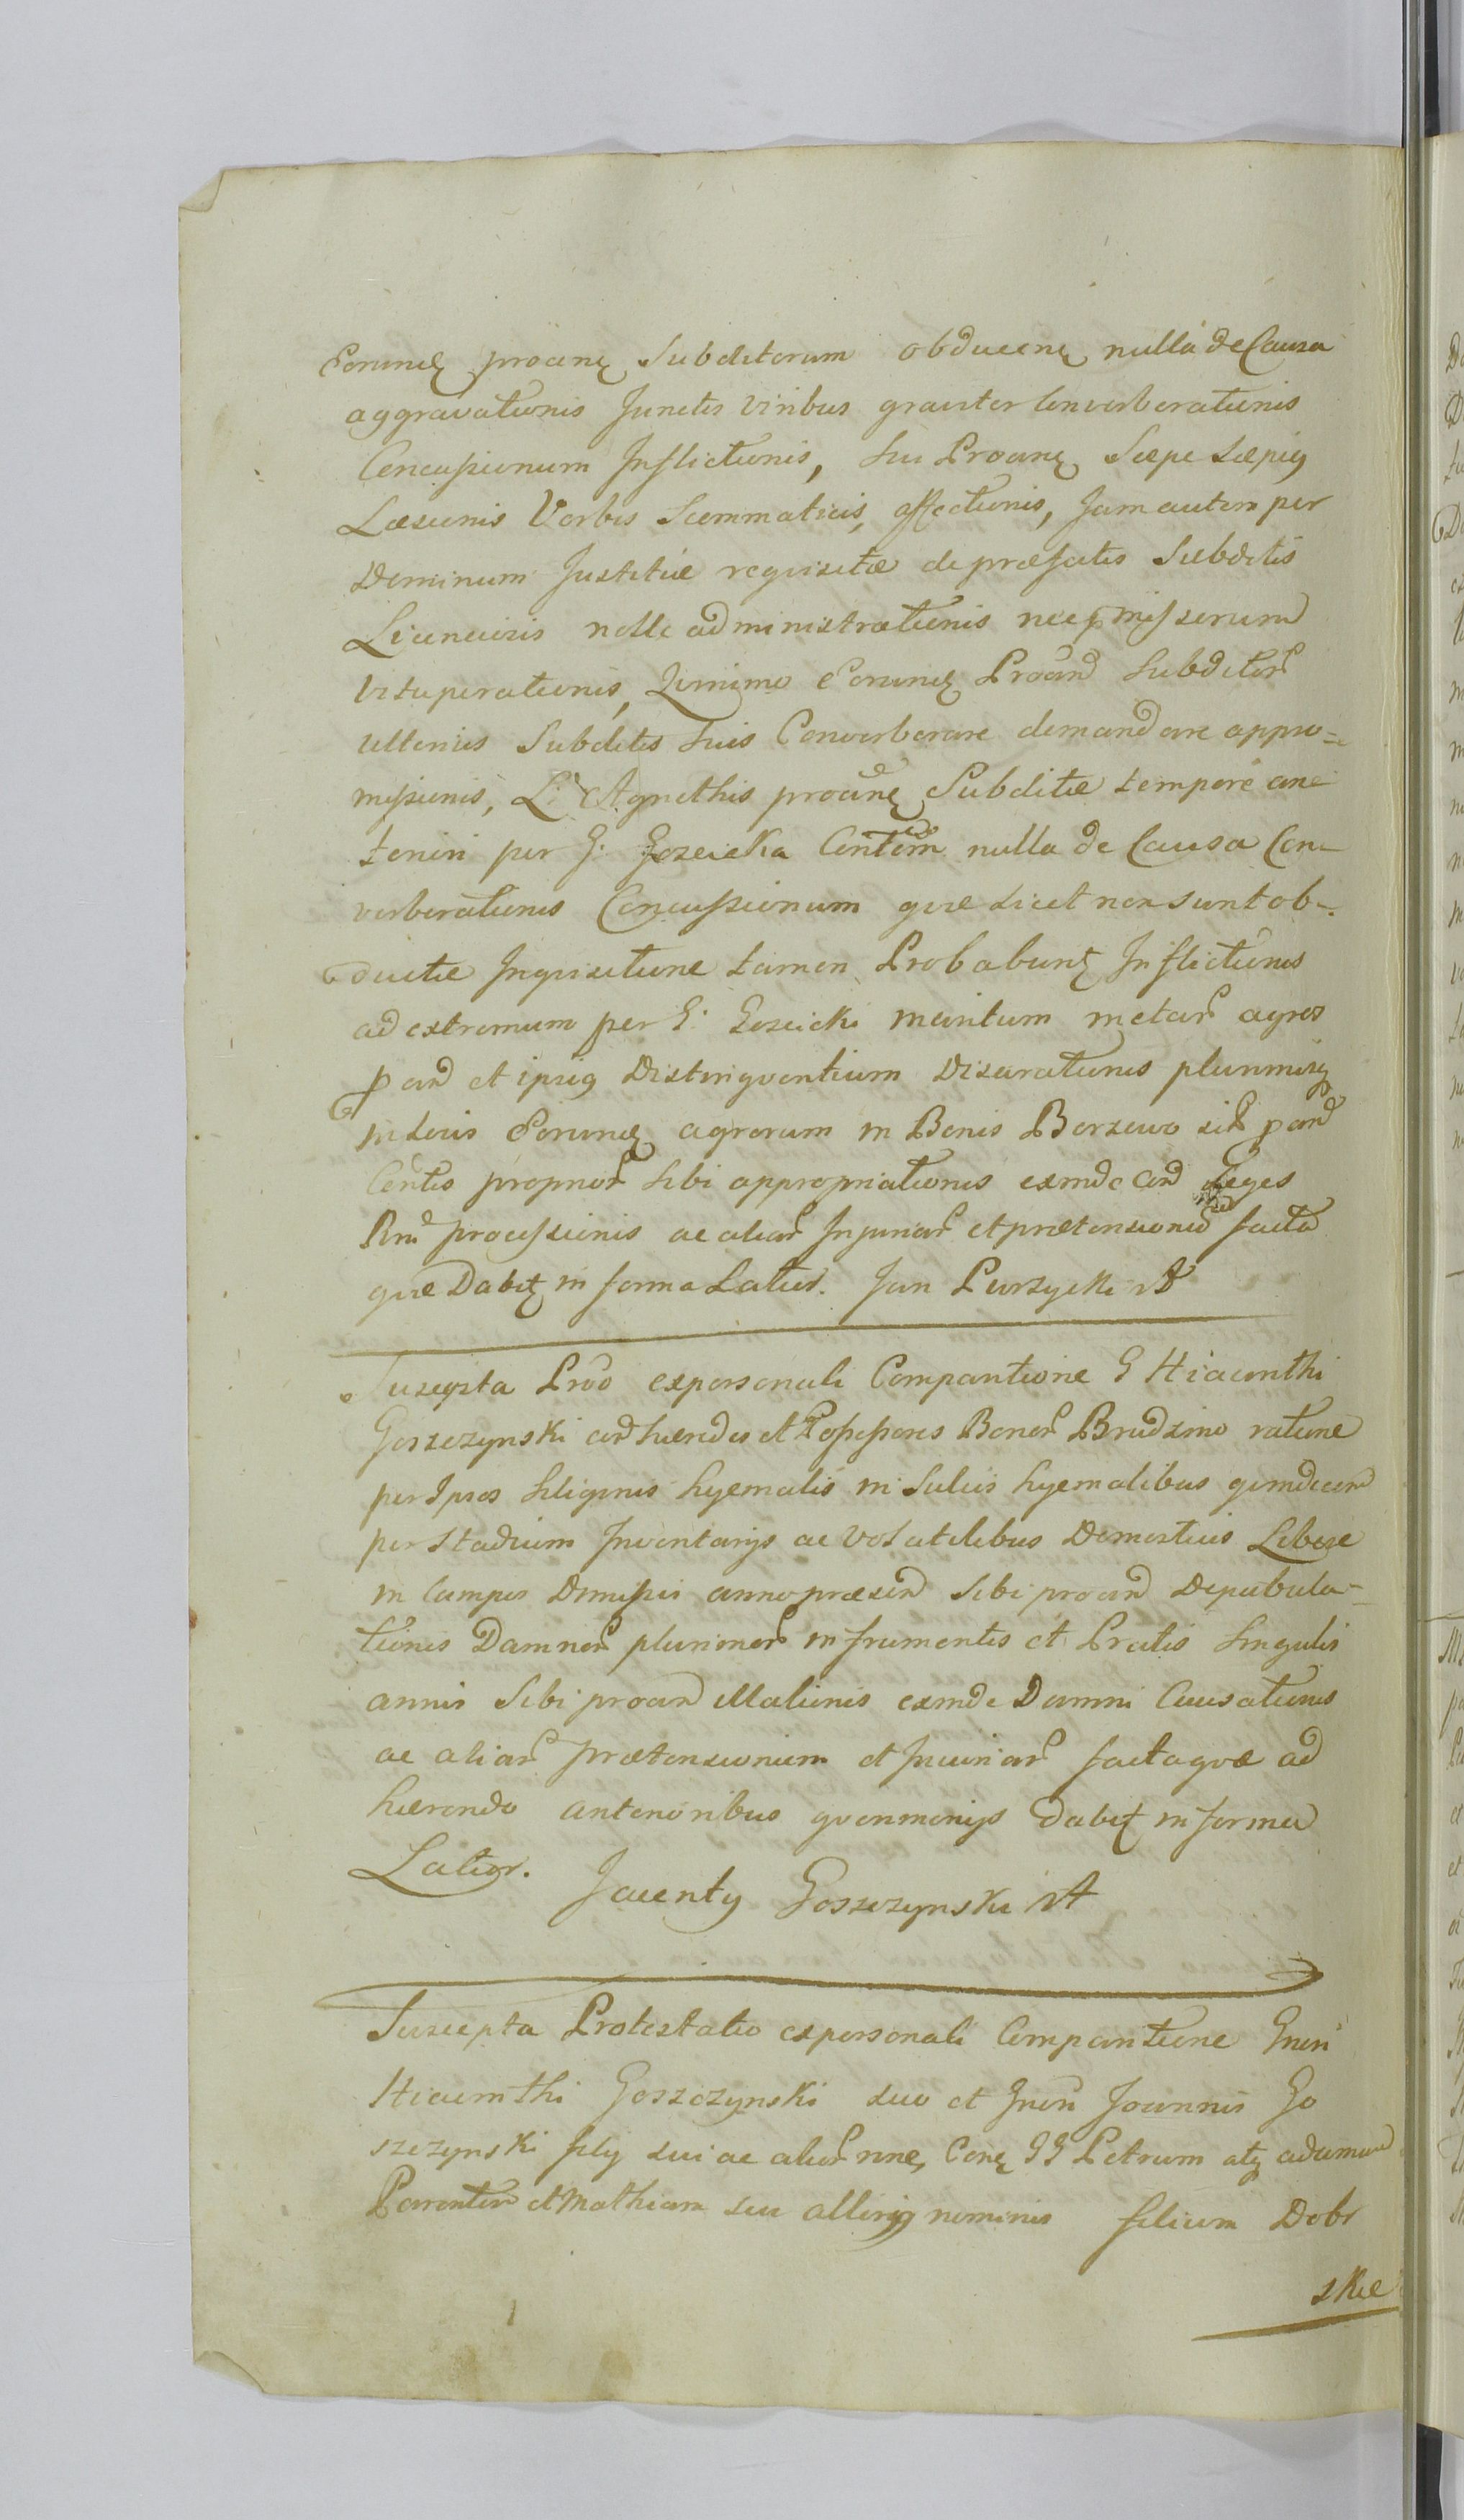 Eorund procanę Subditorum obducenę nulla de Causa
aggravationis Junctis viribus graviter Converberationis
Concussionum Inflictionis, Sui Procanę Sæpe sæpiq
Læsionis Verbis Scommaticis, affectionis, Jam autem per
Dominum Justitiæ requisitæ de præfatis Subditis
nolle administrationis
vituperationis, Quinimo Eorund Procand Subditor
ulterius Subditis suis Converberare demandare appro=
missionis, L: Agnethis procanę Subditæ tempore an
teriori per G: Gozicka Contem nulla de Causa Con=
verberationis Concussionum quæ licet non sunt ob=
ductæ Inquisitione tamen Probabunt Inflictionis
ad extremum per G: Gozicki meritum metar agros
pand et ipsiq Distinguentium Disarationis plurimisq
in locis Eorund agrorum in Bonis Borzewo sitr pand
Centis proprior sibi appropriationis exinde cord Leges
Rni processionis ac aliar Injuriar et prætensionū facta
quæ Dabit in forma Latiori. Jan Purzycki
Suscepta Pro expersonali Comparitione G Hiacinthi
Goszczynski cord hæredes et Possessores Bonor Brudzino ratione
per Ipsos siliginis hyemalis in Suliis hyemalibus
per Stadium Inventarijs ac volatilibus Domesticis Libere
in Campos Dimissis anno præsen Sibi procand Depabula=
tionis Damnor plurimor in frumentis et Pratis Singulis
annis Sibi procand Illationis exinde Damni Causationis
ac aliar prætensionum et Iniuriar facta quæ ad
hærendo anterioribus qverimonijs Dabit in forma
Latior. Jacenty Goszczynski
Suscepta Protestatio expersonali Comparitione Gnen
Hiacinthi Goszczynski suo et Gnen Joannis Go
szczynski filij sui ac alior nne, Conę GG Petrum atq adamum
Parentem et Mathiam seu alteriq nominis filium Dobr
skie